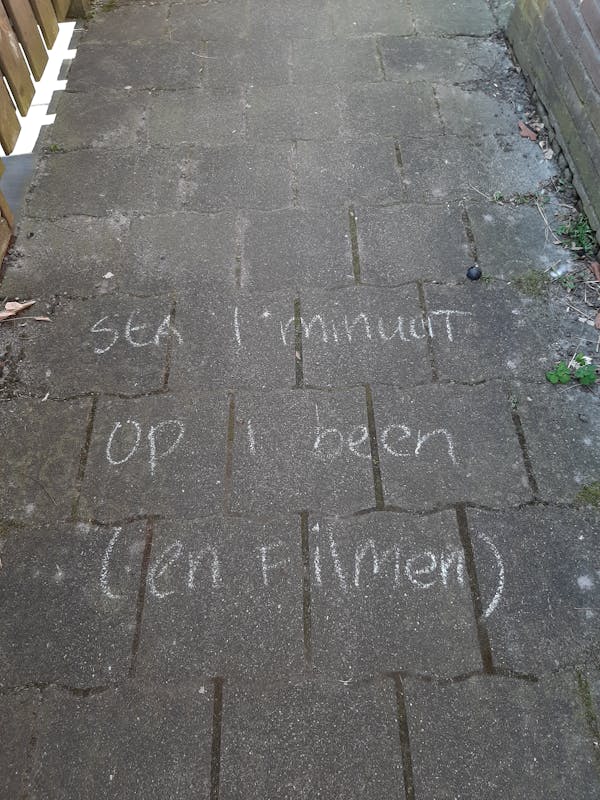 sta 1 minuut
op 1 been
(en Filmen)